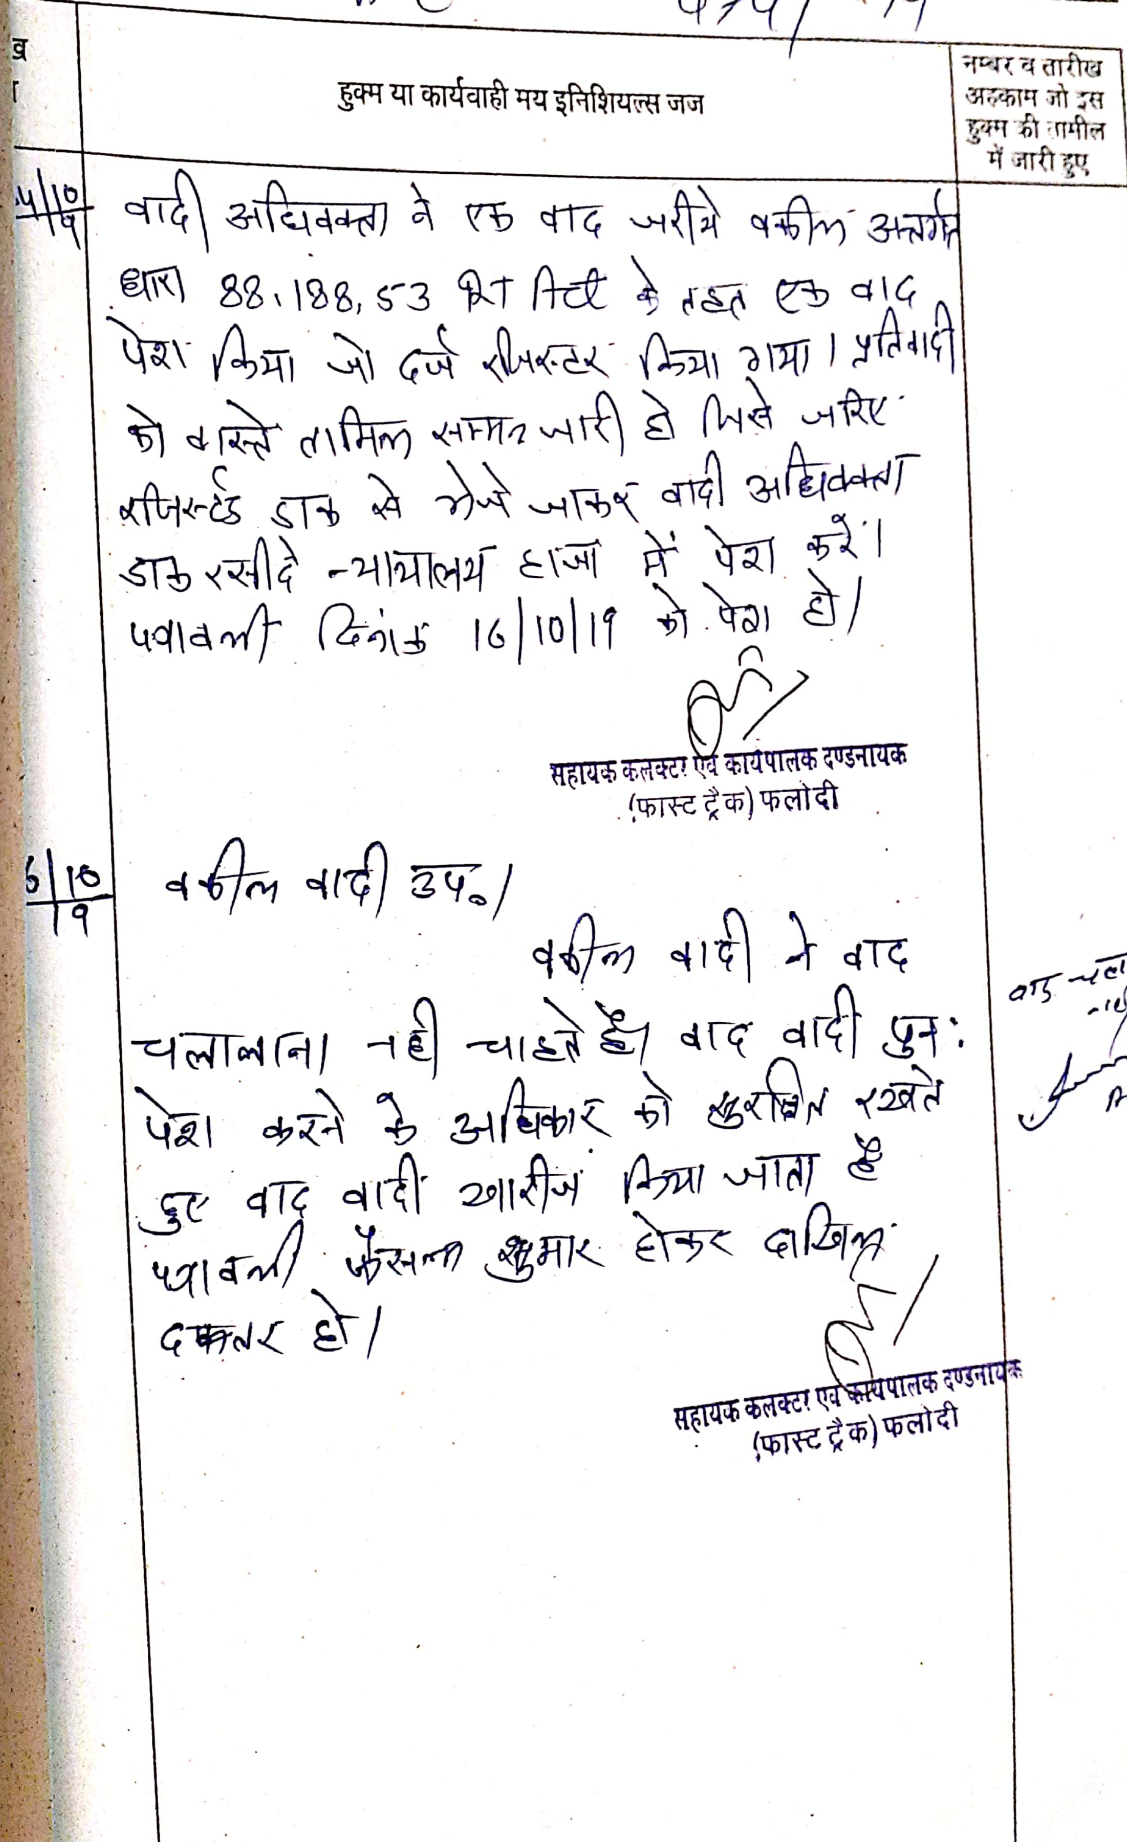 हुक्म या कार्यवाही मय इनिशियल्स जज
नम्बर व तारीख
अहकाम जो इस
हुक्म की तामील
में जारी हुए
वादी अधिवक्ता ने एक वाद जरीये वकील अन्तर्गत
धारा 88, 188, 53 RT Act के तहत एक वाद
पेश किया जो दर्ज रजिस्टर किया गया। प्रतिवादी
को वास्ते तामिल सम्मन जारी हो जिसे जरिए
रजिस्टर्ड डाक से भेजे जाकर वादी अधिवक्ता
डाक रसीदे न्यायालय हाजा में पेश करें।
पत्रावली दिनांक 16/10/19 को पेश हो।
सहायक कलक्टर एवं कार्यपालक दण्डनायक
(फास्ट ट्रैक) फलोदी
6/10
19
वकील वादी उप०।
वकील वादी ने वाद
चलालाना नही चाहते है। वाद वादी पुन:
पेश करने के अधिकार को सुरक्षित रखते
हुए वाद वादी खारीज किया जाता है
पत्रावली फैसला शुमार होकर दाखिल
दफ्तर हो।
वाद
सहायक कलक्टर एवं कार्यपालक दण्डनायक
(फास्ट ट्रैक) फलोदी